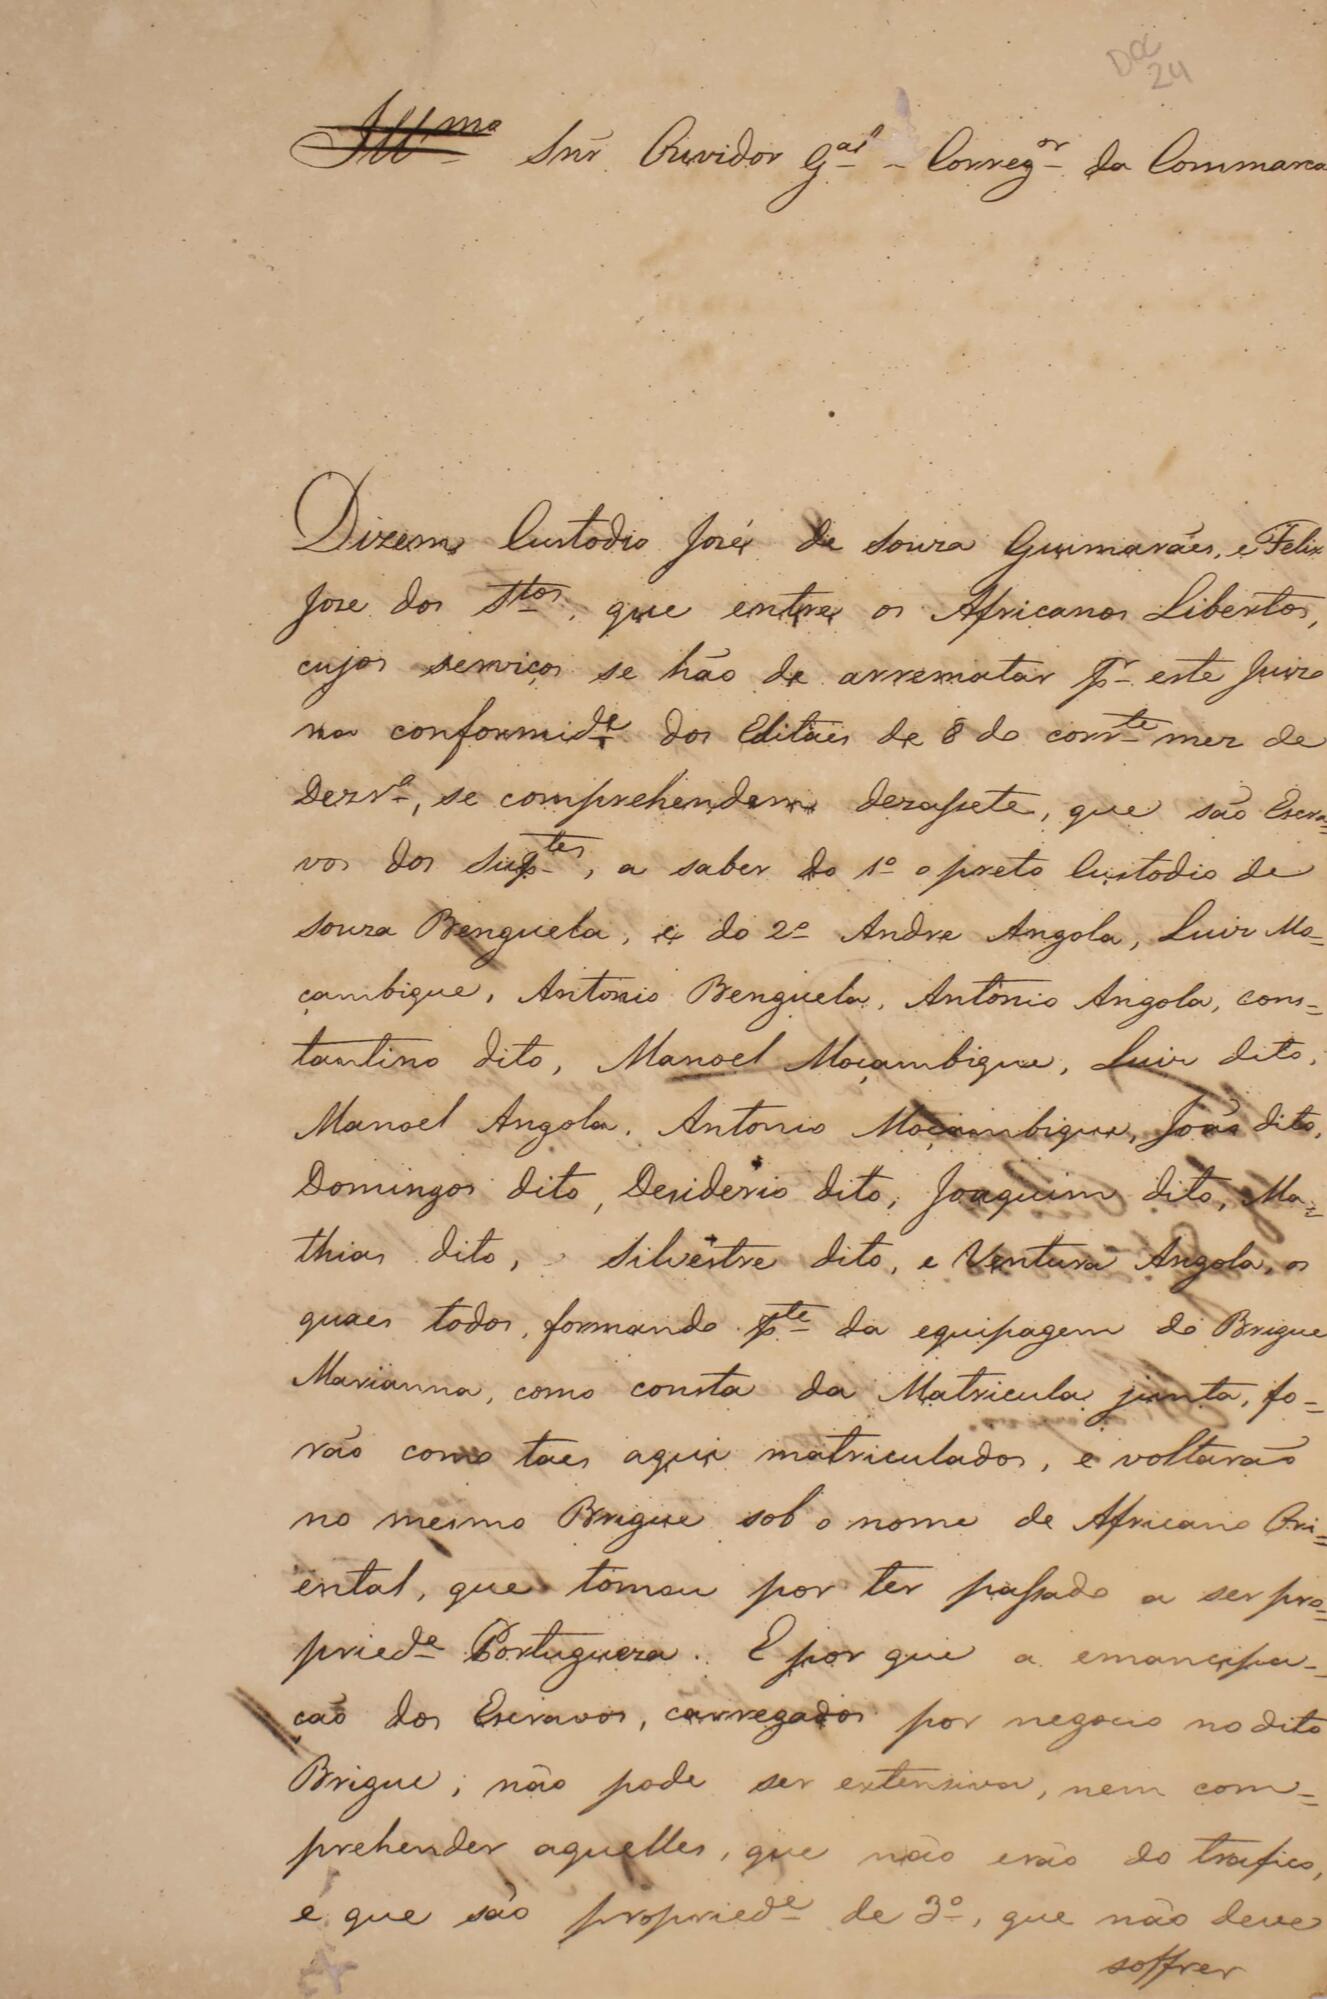 Doc
24
Ill^mo Snr Ouvidor G^al - Correg^or da Commarca
Dizem Custodio José de Souza Guimarães, e Felix
Jose dos S^tos, que entre os Africanos Libertos,
cujos serviços se hão de arrematar p^r este Juizo
na conformid^e dos Editaes de 8 do corr^te mez de
Dezr^o, se comprehendem dezassete, que são Escra=
vos dos Sup^tes, a saber do 1º o preto Custodio de
Souza Benguela, e do 2º Andre Angola, Luiz Mo=
çambique, Antonio Benguela, Antonio Angola, Cons=
tantino dito, Manoel Moçambique, Luiz dito,
Manoel Angola, Antonio Moçambique, João dito,
Domingos dito, Desiderio dito, Joaquim dito, Ma=
thias dito, Silvestre dito, e Ventura Angola, os
quaes todos, formando p^te da equipagem do Brigue
Marianna, como consta da Matricula junta, fo=
rão como taes aqui matriculados, e voltarão
no mesmo Brigue sob o nome de Africano Ori=
ental, que tomou por ter passado a ser pro=
pried^e Portugueza. E por que a emancipa=
ção dos Escravos, carregados por negocio no dito
Brigue, não pode ser extensiva, nem com=
prehender aquelles, que não erão do trafico,
e que são propried^e de 3º, que não deve
soffrer